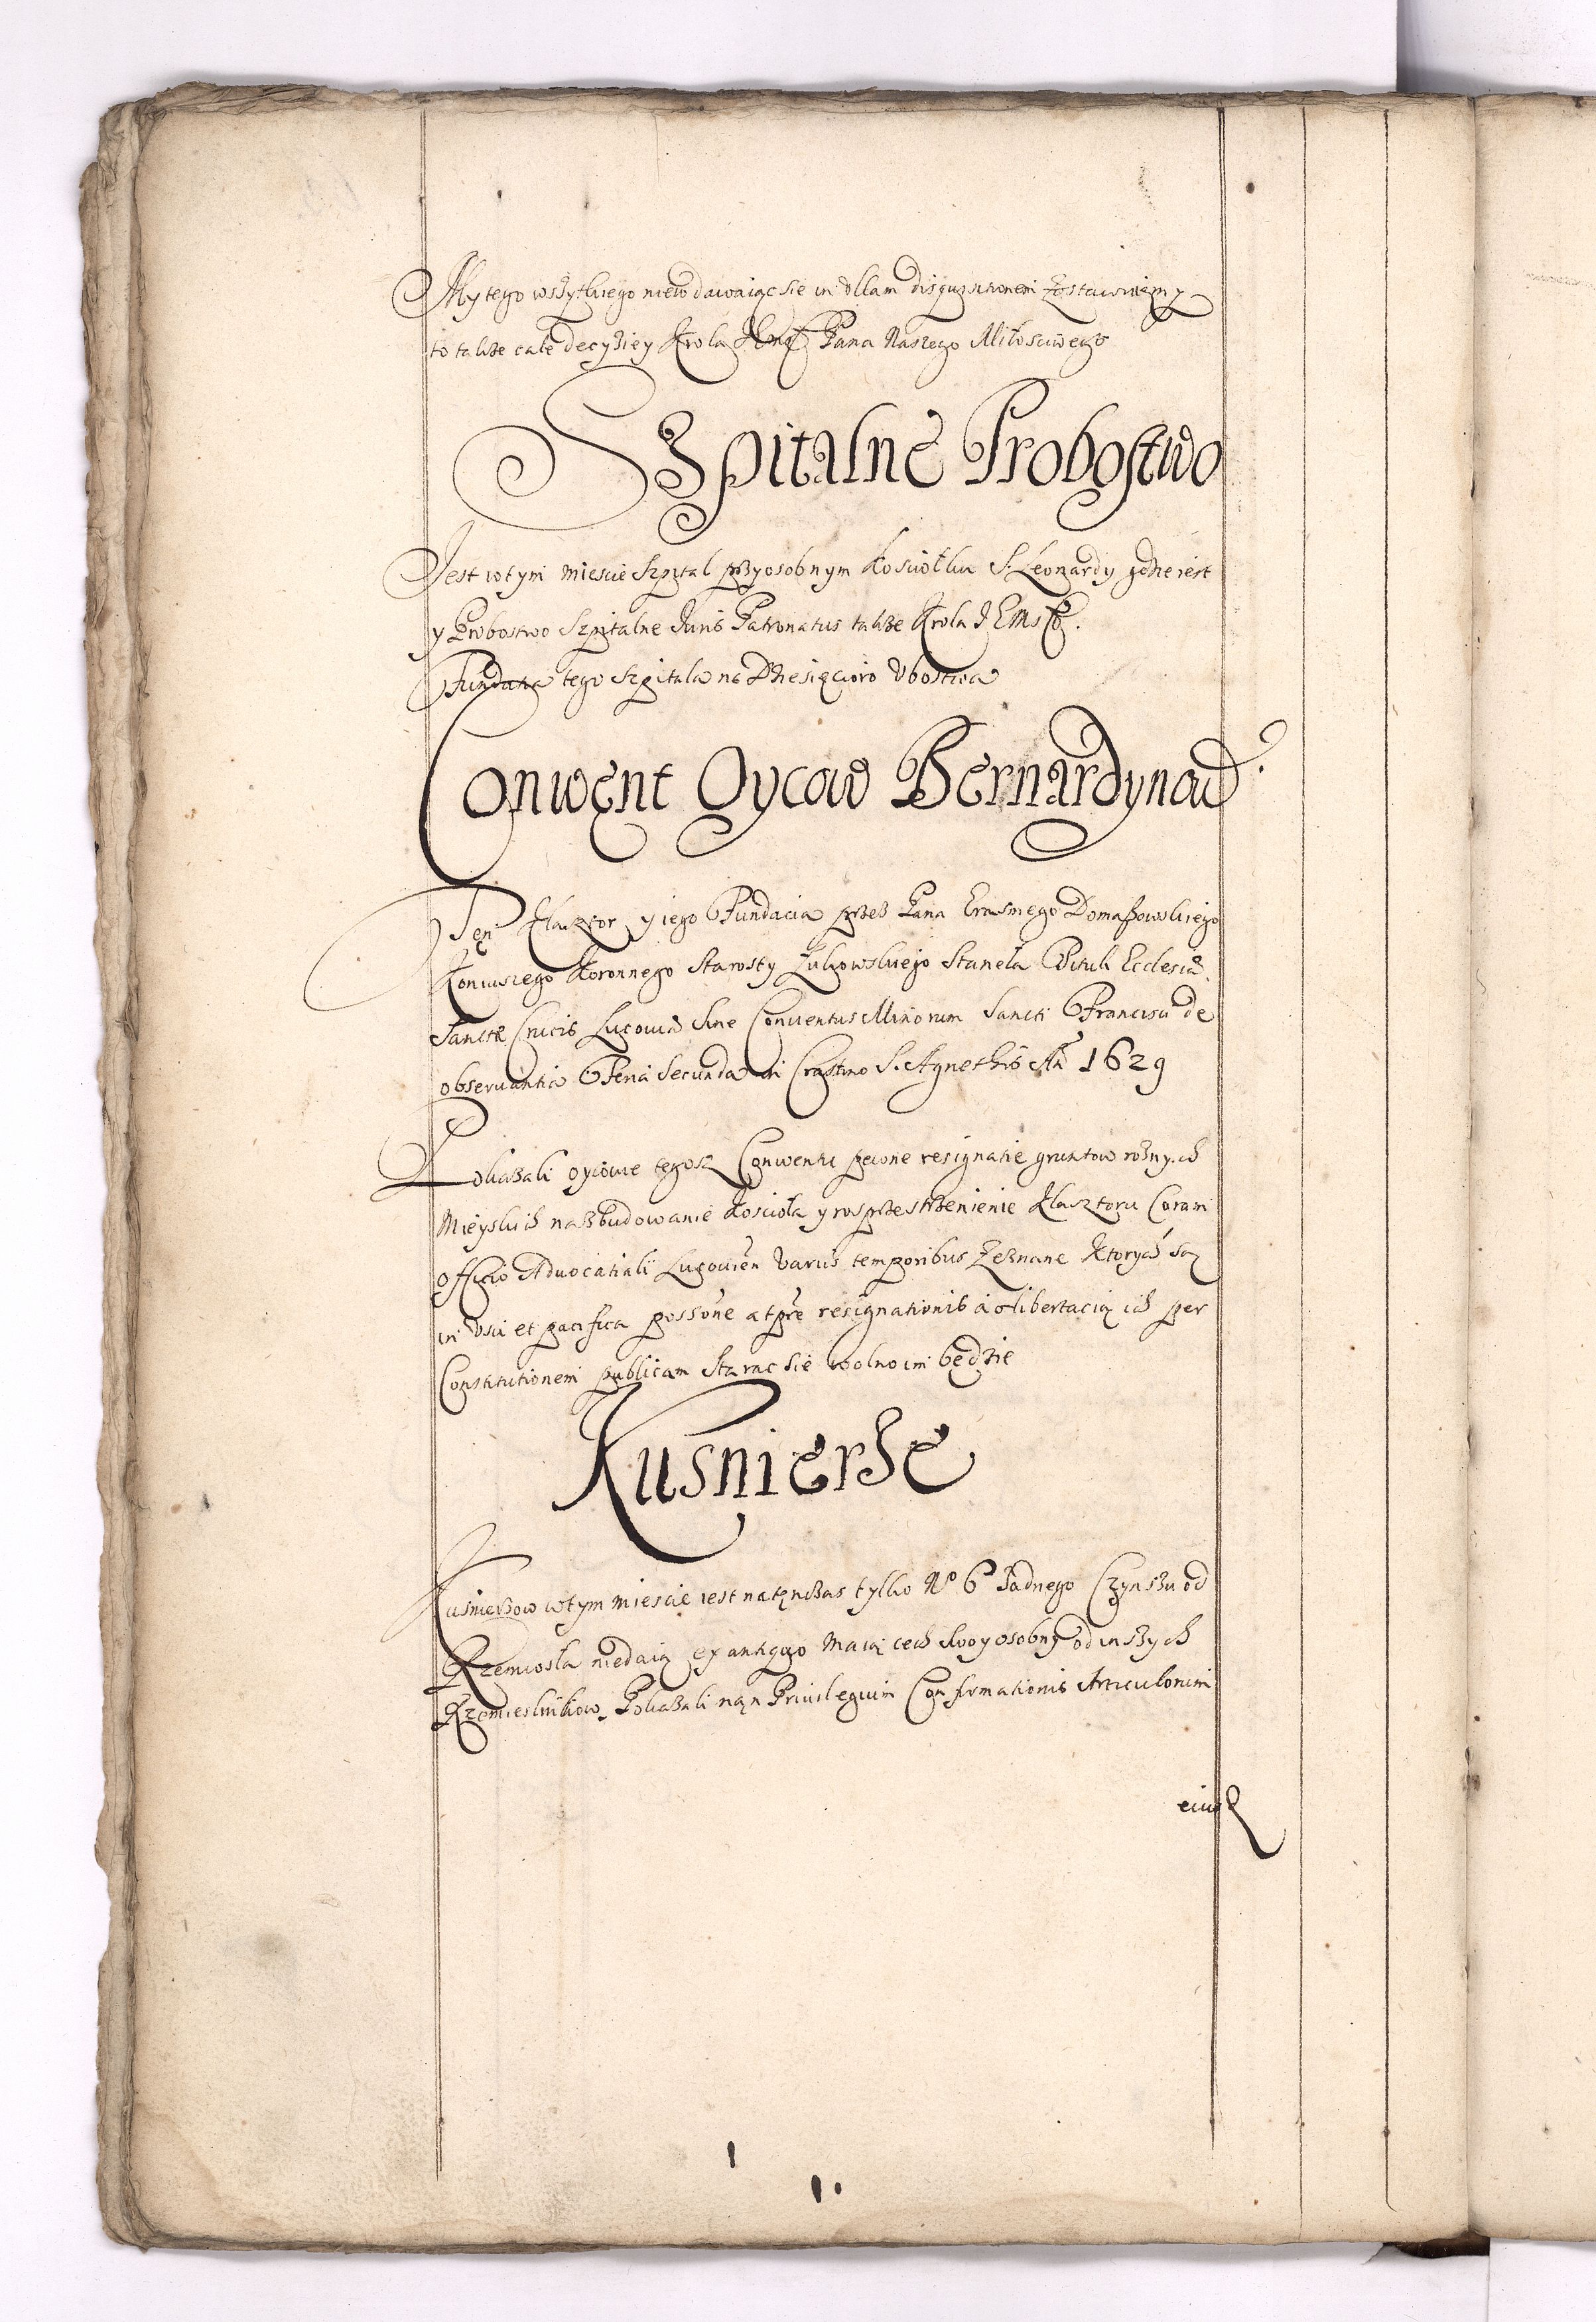 My tego wszytkiego niewdawaiąc sie in ullam disquisitionem zostawuiemy
to także cale decyziey Krola JMsci Pana Naszego Miłosciwego
Szpitalne Probostwo
Jest wtym miescie Szpital przyosobnym Kosciołku S. Leonardy gdzie iest
y Probostwo Szpitalne Juris Patronatus także Krola JEMsci.
Fundacya tego szpitala na Dziesięcioro Vbostwa
Conwent Oycow Bernardynow.
Ten Klasztor y iego Fundacia przez Pana Erasmego Domaszowskiego
Koniuszego Koronnego Starosty Łukowskiego Stanęła Tituli Ecclesiæ
Sanctæ Crucis Lucoviæ Sine Conventus Minorum Sancti Francisci de
observantia Feria Secunda in Crastino S. Agnethis Aō 1629
Pokazali oycowie tegosz Conwentu pewne resignatie gruntow rożnych
Mieyskich nazbudowanie Koscioła y rosprzestrzenienie Klasztoru Coram
officio Advocatiali Lucovien varijs temporibus zeznane Ktorych są
in usu et pacifica possōne atpn̄e resignationis a o libertacią ich per
Constitutionem publicam Starac sie wolno im będzie
Kusnierze
Kusnierzow wtym miescie iest natęnczas tylko No 6 Żadnego Czynszu od
Rzemiosła niedaią ex antiquo Maią cech swoy osobny od inszych
Rzemieslnikow. Pokazali nań Privilegium Confirmationis Articulorum
eiusz